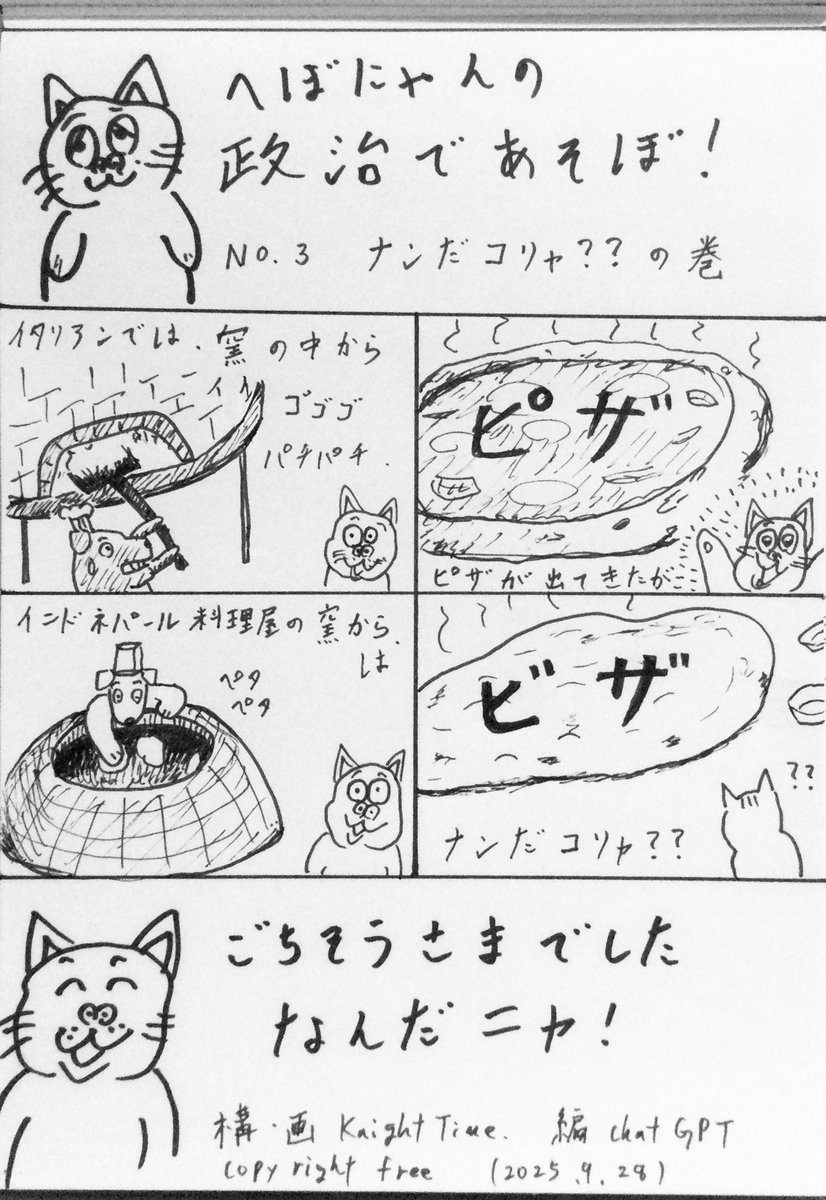 へぼにゃんの
政治であそぼ!
NO.3 ナンだコリャ??の巻
イタリアンでは、窯の中から
ゴゴゴ
パチパチ.
ピザ
ピザが出てきたがニ
インドネパール料理屋の窯から、
は
ペタ
ペタ
ビザ
??
ナンだコリャ??
ごちそうさまでした
なんだニャ!
構・画 Knight Time. 編 chat GPT
copy right free (2025.9.28)